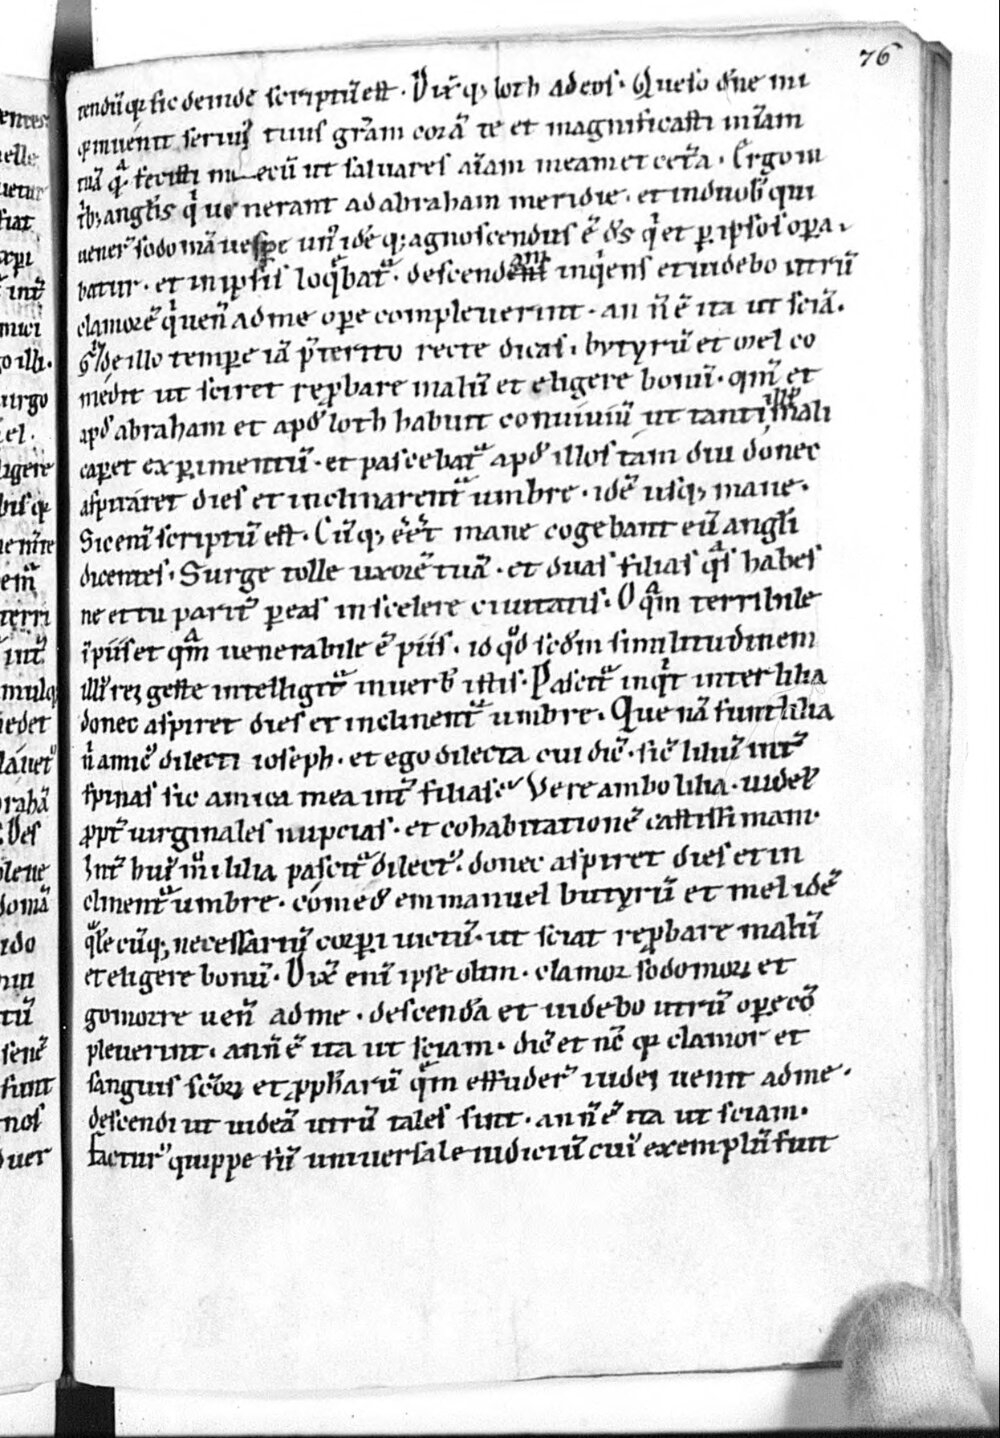 76
tendũ q̃ sic deinde scriptũ est · Dix̃ q; loth ad eos · Queso dñe mi
q̃ inuenit seruus tuus grãm corã te et magnificasti mĩam
tuã quã fecisti mecũ ut saluares aĩam meam et cetã · Ergo in
trib; anglis q̃ uenerant ad abraham meridie · et in duob; qui
uener̃ sodomã uespe un' idẽ q; agnoscendus ẽ d̃s q̃ et p ipsos opa
batur · et in ipsis loq̃bat' · descendam inq̃ens et uidebo utrũ
clamorẽ q̃ uen̄ ad me ope compleuerint · an ñ ẽ ita ut sciã ·
de illo tempe iã p̃terito recte dicas · butyrũ et mel co
medit ut sciret rep̃bare malũ et eligere bonũ · qm̃ et
apd' abraham et apd' loth habuit conuiuiũ ut tanti illi' mali
caperet expimentũ · et pascebat' apd' illos tam diu donec
aspiraret dies et inclinarent' umbre · idẽ usq; mane ·
Sic enĩ scriptũ est · Cũq; eẽt mane cogebant eũ angli
dicentes · Surge tolle uxorẽ tuã · et duas filias q̃s habes
ne et tu parit' peas in scelere ciuitatis · O q̃m terribile
ĩpiis et q̃m uenerabile ẽ piis · id q̃d scdm similitudinem
illi' rei geste intelligit' in uerb' istis · Pascit' inq̃t inter lilia
donec aspiret dies et inclinent' umbre · Que nã sunt lilia
ñ amic' dilecti ioseph · et ego dilecta cui dic̃ · sic̃ liliũ int'
spinas sic amica mea int' filias · Vere ambo lilia · uidel'
ppt' uirginales nupcias · et cohabitationẽ castissimam ·
Int' hui'm̃i lilia pascit' dilect' · donec aspiret dies et in
clinent' umbre · comed' emmanuel butyrũ et mel idẽ
q̃lecũq; necessariũ corpi uictũ · ut sciat rep̃bare malũ
et eligere bonũ · Dix̃ enĩ ipse olim · clamor sodomoꝝ et
gomorre uen̄ ad me · descendã et uidebo utrũ ope cõ
pleuerint · an ñ ẽ ita ut sciam · dic̃ et nc̃ q̃ clamor et
sanguis scõꝝ et p̃pharũ q̃m effuder̃ iudei uenit ad me ·
descendi ut uideã utrũ tales sint · an ñ ẽ ita ut sciam ·
Factur' quippe sũ uniuersale iudiciũ cui' exemplũ fuit